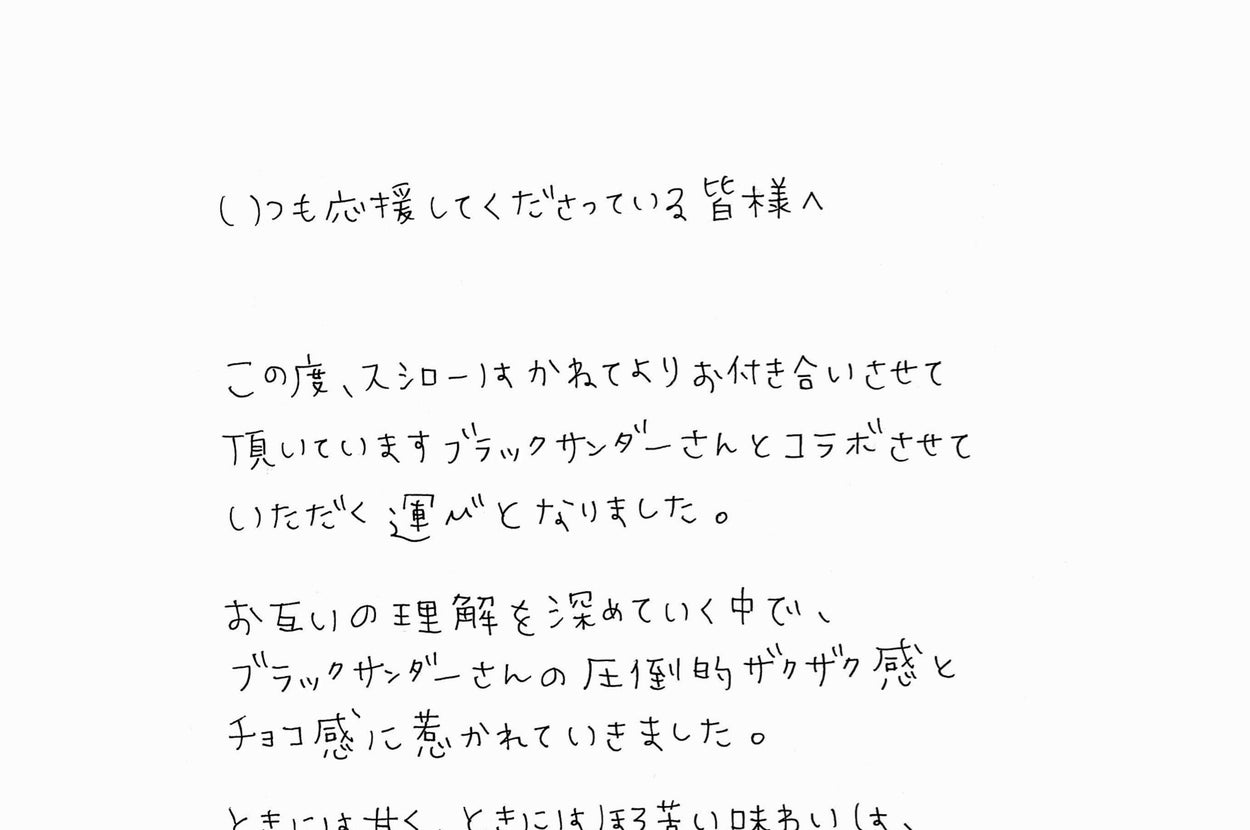 いつも応援してくださっている皆様へ
この度、スシローはかねてよりお付き合いさせて
頂いていますブラックサンダーさんとコラボさせて
いただく運びとなりました。
お互いの理解を深めていく中で、
ブラックサンダーさんの圧倒的ザクザク感と
チョコ感に惹かれていきました。
ときには甘く、ときにはほろ苦い味わいは、